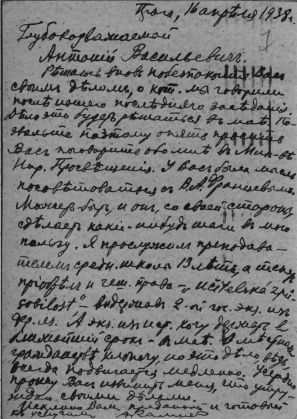 Прага, 16 апреля 1938 г.
7
Глубокоуважаемый
Антоний Васильевич.
Решаюсь вновь побеспокоить Вас
своим делом, о кот. мы говорили
после нашего последнего заседания.
Дело это будет решаться в мае. По-
жалуйста поэтому опять просить
Вас поговорить обо мне в Мин-ве
Нар. Просвещения. У Вас была мысль
посоветоваться с В. А. Францевым.
Может быть, и он, со своей стороны
сделает какие-нибудь шаги в мою
пользу. Я прослужил преподава-
телем средн. школы 13 лет, а теперь
приобрел и чеш. права
sobilost" - выдержав 2-ой гос. экз. из
фр. яз. А экз. из чер. хочу держать в
ближайший срок - в мае.
гражданстве хлопочу, но это дело
всегда подвигается медленно. Усердно
прошу Вас извинить меня, что утру-
ждаю своими делами.
Искренно Вам преданный и готовый к
услугам